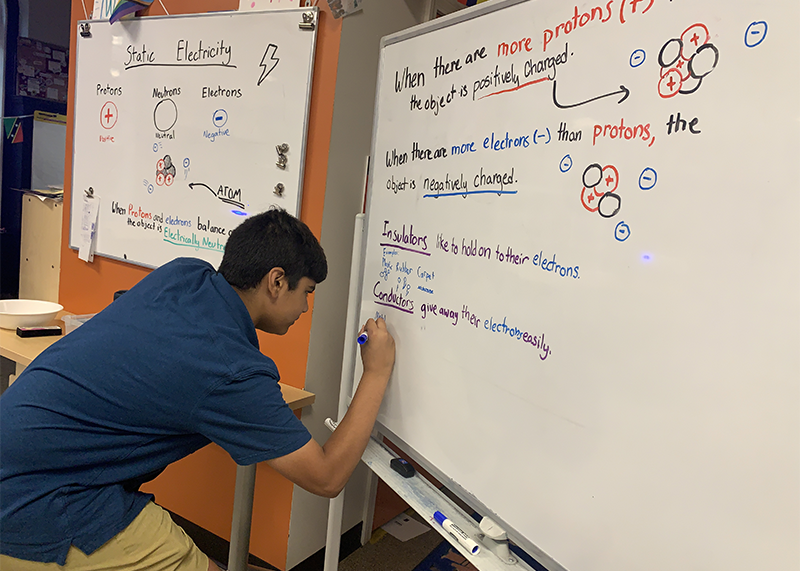 Static Electricity
Protons
Neutrons
Electrons
+
−
Positive
neutral
Negative
ATOM
When Protons and electrons balance
the object is Electrically Neutral
When there are more protons (+)
the object is positively charged.
When there are more electrons (−) than protons, the
object is negatively charged.
Insulators like to hold on to their electrons.
Examples
Plastic Rubber Carpet
Conductors give away their electrons easily.